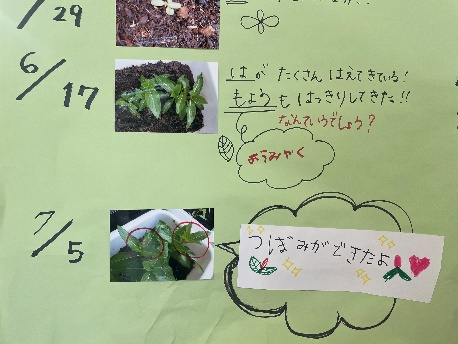 /29
6/17
はが たくさん はえてきている!
もようも はっきりしてきた!!
なんていうでしょう?
ようみゃく
7/5
つぼみができたよ